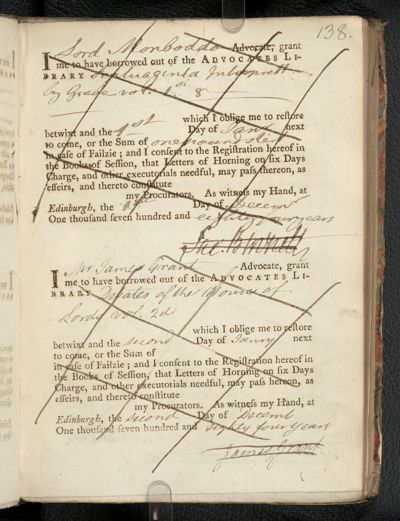 138.
I Lord Monboddo Advocate, grant
me to have borrowed out of the ADVOCATES LI-
BRARY Septuaginta
by Grabe vol. 8
which I oblige me to reſtore
betwixt and the 1st Day of Janry next
to come, or the Sum of one pound ster
in caſe of Failzie; and I conſent to the Regiſtration hereof in
the Books of Seſſion, that Letters of Horning on ſix Days
Charge, and other executorials needful, may paſs hereon, as
effeirs, and thereto conſtitute
my Procurators. As witneſs my Hand, at
Edinburgh, the Day of Decemr
One thouſand ſeven hundred and eighty four years
Jas. Burnett
I Mr James Grant Advocate, grant
me to have borrowed out of the ADVOCATES LI-
BRARY Debates of the House of
Lords vol. 2d
which I oblige me to reſtore
betwixt and the second Day of Janry next
to come, or the Sum of
in caſe of Failzie; and I conſent to the Regiſtration hereof in
the Books of Seſſion, that Letters of Horning on ſix Days
Charge, and other executorials needful, may paſs hereon, as
effeirs, and thereto conſtitute
my Procurators. As witneſs my Hand, at
Edinburgh, the second Day of Decemr
One thouſand ſeven hundred and eighty four years
James Grant